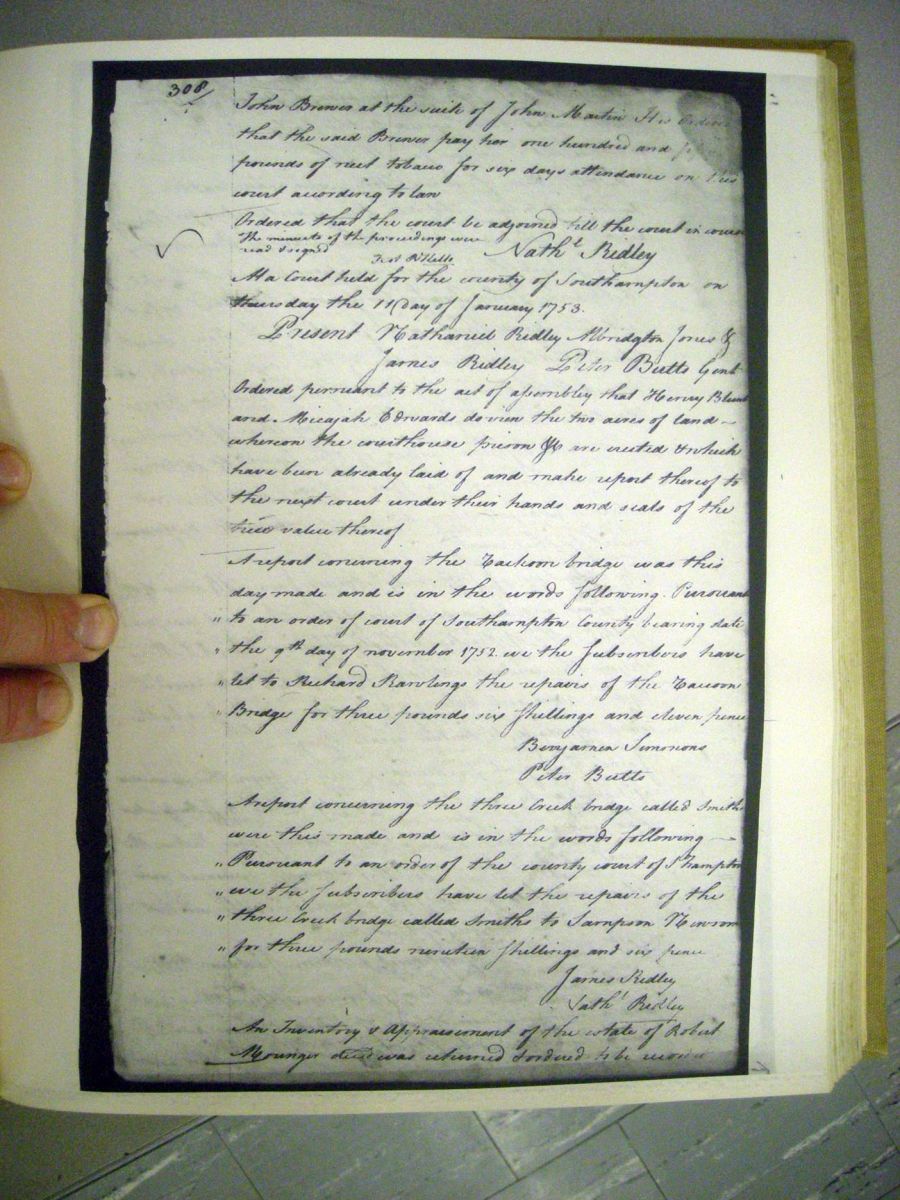 308/
John Brewer at the suit of John Martin It is Ordered
that the said Brewer pay her one hundred and
pounds of neet tobaco for six days attendance on this
court according to law
Ordered that the court be adjoined till the court in course
The minuets of the proceedings were
read & signed
Natht Ridley
At a Court held for the county of Southampton on
thursday the 11 day of January 1753.
Present Nathaniel Ridley Albridgton Jones &
James Ridley Peter Butts Gent
Ordered persuant to the act of assembley that Henry Blunt
and Micajah Edwards do view the two acres of land
whereon the courthouse prison &c are erected & which
have been already laid of and make report thereof to
the next court under their hands and seals of the
true value thereof
A report concerning the Tackoon bridge was this
day made and is in the words following. Pursuant
" to an order of court of Southampton County bearing date
" the 9th day of november 1752. we the Subscribers have
" let to Richard Rawlings the repairs of the Tacoon
" Bridge for three pounds six Shillings and eleven pence
Benjamen Simmons
Peter Butts
A report concerning the three Creek bridge called Smiths
were this made and is in the words following
" Pursuant to an order of the county court of S hampton
" we the Subscribers have let the repairs of the
" three Creek bridge called Smiths to Sampson Newsom
" for three pounds nineteen Shillings and six pence
James Ridley
Natht Ridley
An Inventory & Appraisement of the estate of Robert
Mounger decd was returned & ordered to be recorded